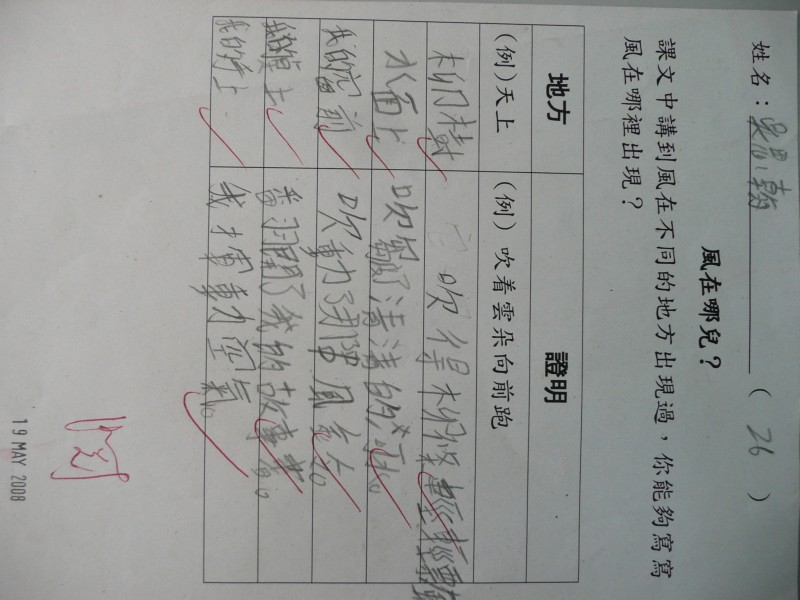 姓名：吳思翰（ 26 ）
風在哪兒？
課文中講到風在不同的地方出現過，你能夠寫寫
風在哪裡出現？
地方 證明
(例)天上 (例)吹着雲朵向前跑
柳樹 吹得柳條輕輕
水面上 吹皺了清清的河水。
我的窗前 吹動了風
我的桌上 翻開了我的故事書。
我的身上 我 動空氣。
19 MAY 2008